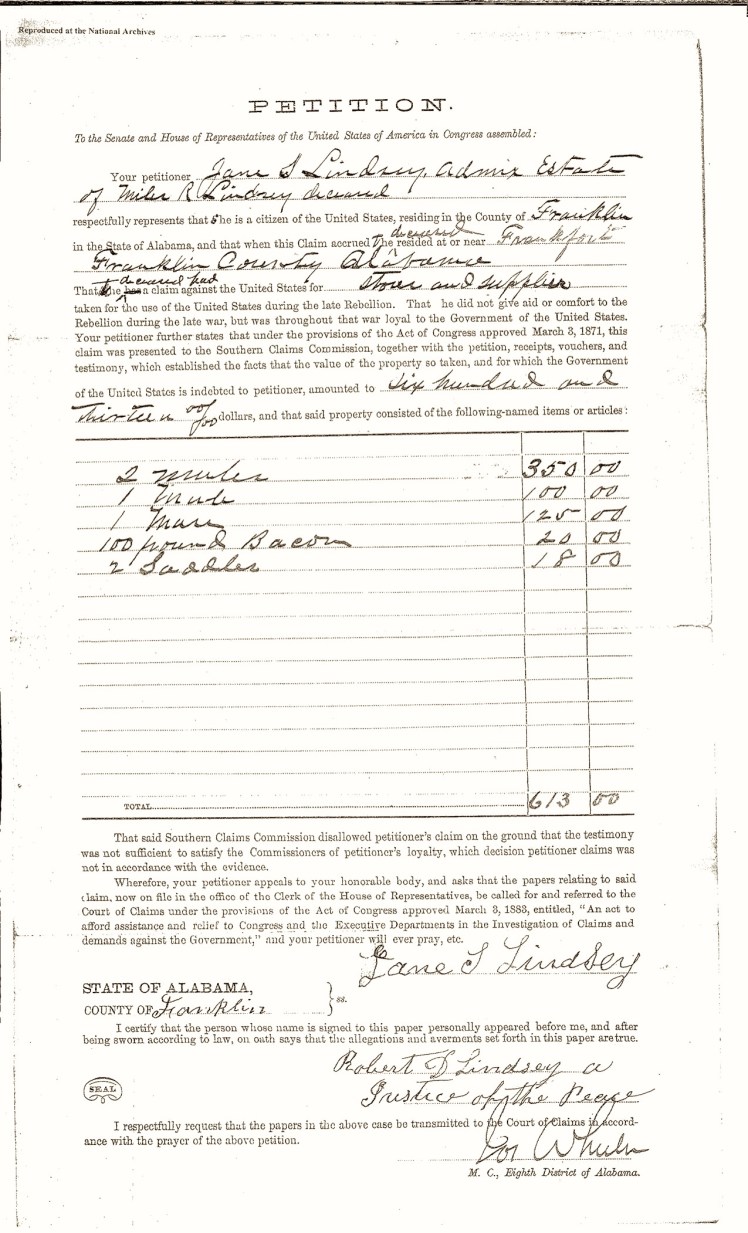 Reproduced at the National Archives
PETITION.
To the Senate and House of Representatives of the United States of America in Congress assembled:
Your petitioner Jane S Lindsey, Admix Estate
of Miles R Lindsey deceased
respectfully represents that she is a citizen of the United States, residing in the County of Franklin
in the State of Alabama, and that when this Claim accrued the deceased resided at or near Frankfort
Franklin County Alabama
That the deceased had a claim against the United States for stores and supplies
taken for the use of the United States during the late Rebellion. That he did not give aid or comfort to the
Rebellion during the late war, but was throughout that war loyal to the Government of the United States.
Your petitioner further states that under the provisions of the Act of Congress approved March 3, 1871, this
claim was presented to the Southern Claims Commission, together with the petition, receipts, vouchers, and
testimony, which established the facts that the value of the property so taken, and for which the Government
of the United States is indebted to petitioner, amounted to six hundred and
thirteen 00/00 dollars, and that said property consisted of the following-named items or articles:
2 Mules 350 00
1 Mule 100 00
1 Mare 125 00
100 pound Bacon 20 00
2 Saddles 18 00
TOTAL 613 00
That said Southern Claims Commission disallowed petitioner's claim on the ground that the testimony
was not sufficient to satisfy the Commissioners of petitioner's loyalty, which decision petitioner claims was
not in accordance with the evidence.
Wherefore, your petitioner appeals to your honorable body, and asks that the papers relating to said
claim, now on file in the office of the Clerk of the House of Representatives, be called for and referred to the
Court of Claims under the provisions of the Act of Congress approved March 3, 1883, entitled, "An act to
afford assistance and relief to Congress and the Executive Departments in the Investigation of Claims and
demands against the Government," and your petitioner will ever pray, etc.
Jane S Lindsey
STATE OF ALABAMA,
COUNTY OF Franklin } ss.
I certify that the person whose name is signed to this paper personally appeared before me, and after
being sworn according to law, on oath says that the allegations and averments set forth in this paper are true.
Robert D Lindsey a
SEAL
Justice of the Peace
I respectfully request that the papers in the above case be transmitted to the Court of Claims in accord-
ance with the prayer of the above petition.
Jos Wheeler
M. C., Eighth District of Alabama.